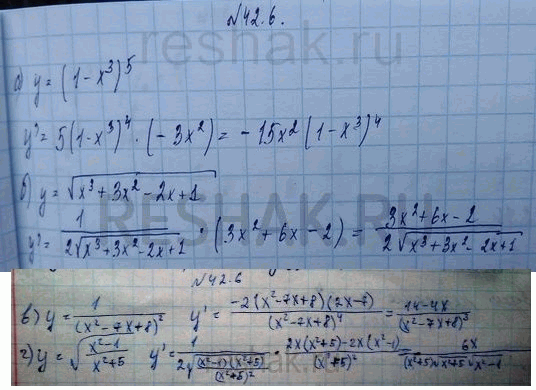 №42.6.
reshak.ru
а) y = (1 - x³)⁵
y' = 5(1 - x³)⁴ · (- 3x²) = - 15x² (1 - x³)⁴
б) y = √(x³ + 3x² - 2x + 1)
RESHAK.RU
y' = 1 / (2√(x³ + 3x² - 2x + 1)) · (3x² + 6x - 2) = (3x² + 6x - 2) / (2√(x³ + 3x² - 2x + 1))
№42.6
в) y = 1 / (x² - 7x + 8)² y' = -2(x² - 7x + 8)(2x - 7) / (x² - 7x + 8)⁴ = (14 - 4x) / (x² - 7x + 8)³
г) y = √((x² - 1) / (x² + 5)) y' = 1 / (2√((x² - 1)(x² + 5) / (x² + 5)²)) · (2x(x² + 5) - 2x(x² - 1)) / (x² + 5)² = 6x / ((x² + 5)√(x² + 5)√(x² - 1))